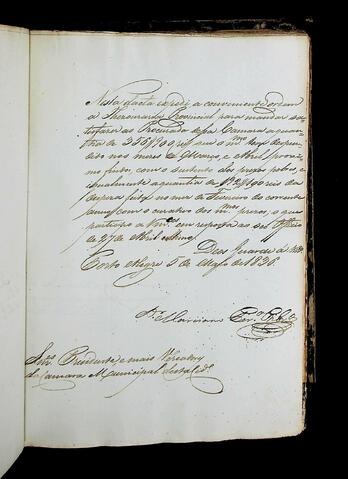 Nesta data expedi a conveniente ordem
a Thesouraria Provincial para mandar sa
tisfazer ao Procurador dessa Camara a quan
tia de 356$700 reis que o m.mo
nos mezes de Março, e Abril
findo, com o sustento dos prezos pobres, e
igualmente a quantia de reis da
despeza feita no mez de Fevereiro do corrente
anno com o curativo dos m.mos prezos, o que
participo a Vm.ces em resposta ao seu Officio
de 27 de Abril
Deos Guarde a Vm.ces
Porto Alegre 5 de de 1836.
Marciano Per.a
Snr.es Prezidente, e mais Vereadores
da Camara Municipal desta Cid.e